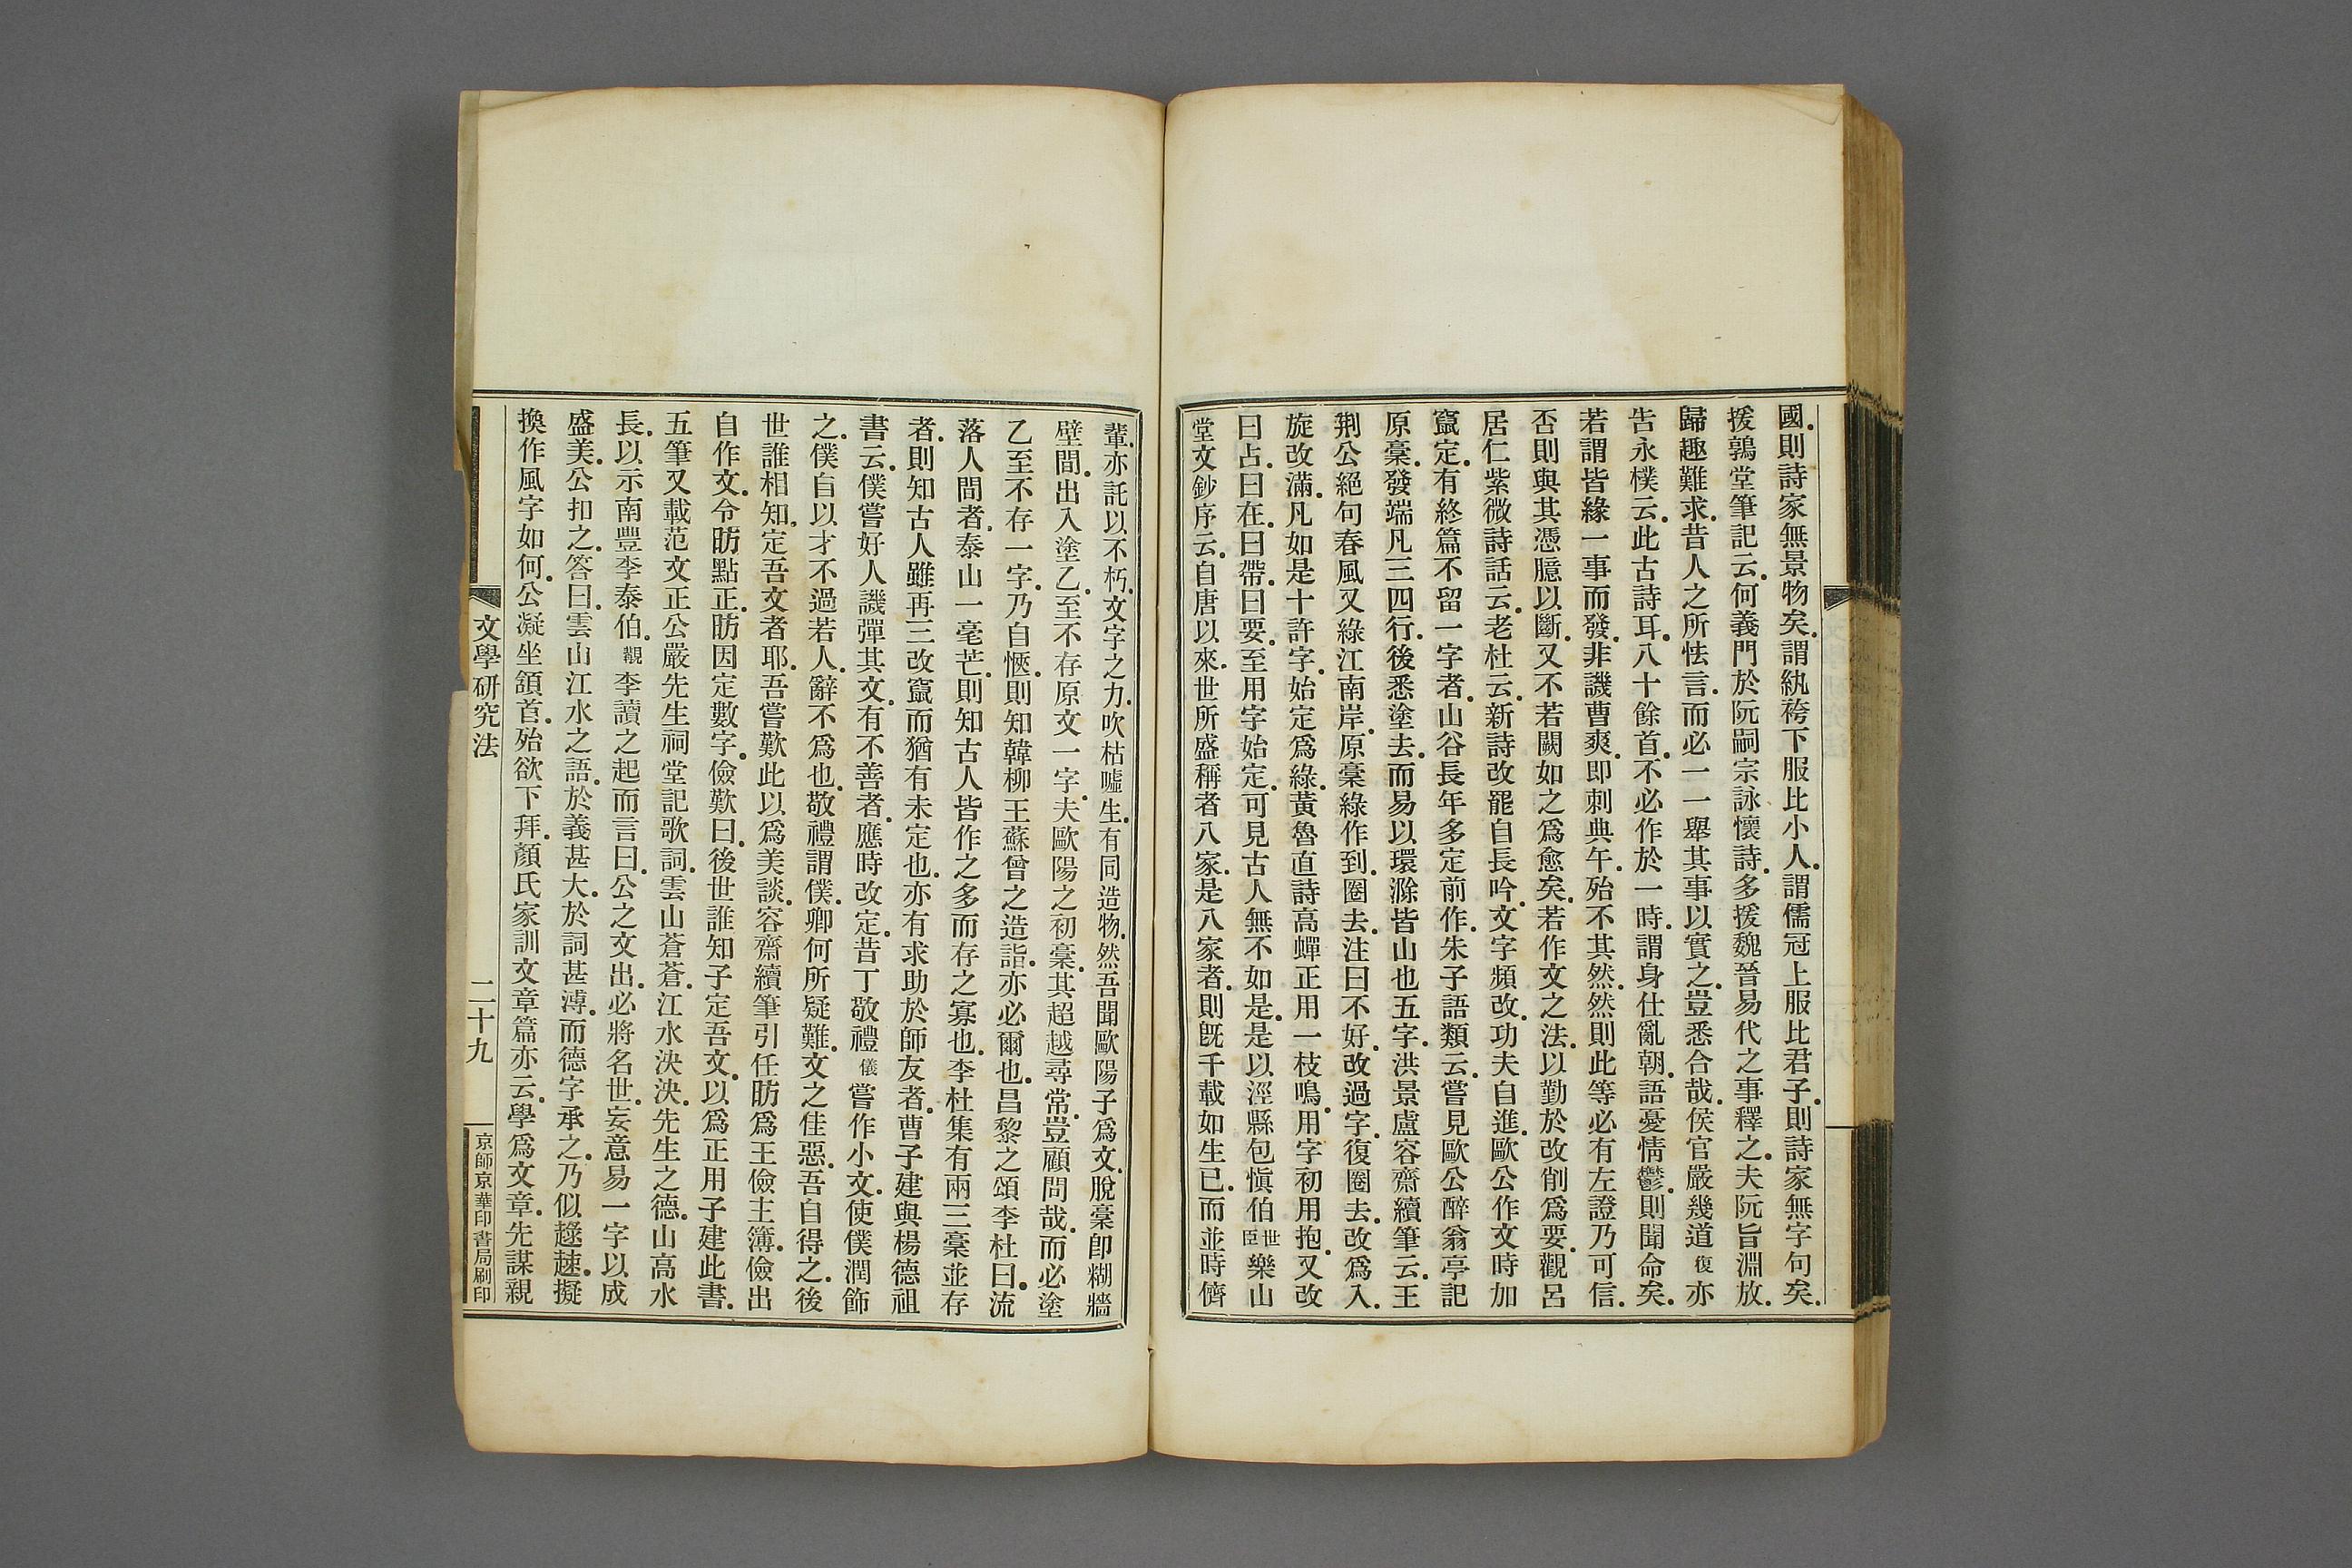 國則詩家無景物矣謂紈袴下服比小人謂儒冠上服比君子則詩家無字句矣
援鶉堂筆記云何義門於阮嗣宗詠懷詩多援魏晉易代之事釋之夫阮旨淵放
歸趣難求昔人之所怯言而必一一舉其事以實之豈悉合哉侯官嚴幾道復亦
告永樸云此古詩耳八十餘首不必作於一時謂身仕亂朝語憂情鬱則聞命矣
若謂皆緣一事而發非譏曹爽即刺典午殆不其然然則此等必有左證乃可信
否則與其憑臆以斷又不若闕如之爲愈矣若作文之法以勤於改削爲要觀呂
居仁紫微詩話云老杜云新詩改罷自長吟文字頻改功夫自進歐公作文時加
竄定有終篇不留一字者山谷長年多定前作朱子語類云嘗見歐公醉翁亭記
原稾發端凡三四行後悉塗去而易以環滁皆山也五字洪景盧容齋續筆云王
荆公絕句春風又綠江南岸原稾綠作到圈去注曰不好改過字復圈去改爲入
旋改滿凡如是十許字始定爲綠黃魯直詩高蟬正用一枝鳴用字初用抱又改
曰占曰在曰帶曰要至用字始定可見古人無不如是是以涇縣包愼伯世臣樂山
堂文鈔序云自唐以來世所盛稱者八家是八家者則旣千載如生已而並時儕
輩亦託以不朽文字之力吹枯噓生有同造物然吾聞歐陽子爲文脫稾卽糊牆
壁間出入塗乙至不存原文一字夫歐陽之初稾其超越尋常豈顧問哉而必塗
乙至不存一字乃自愜則知韓柳王蘇曾之造詣亦必爾也昌黎之頌李杜曰流
落人間者泰山一毫芒則知古人皆作之多而存之寡也李杜集有兩三稾並存
者則知古人雖再三改竄而猶有未定也亦有求助於師友者曹子建與楊德祖
書云僕嘗好人譏彈其文有不善者應時改定昔丁敬禮儀嘗作小文使僕潤飾
之僕自以才不過若人辭不爲也敬禮謂僕卿何所疑難文之佳惡吾自得之後
世誰相知定吾文者耶吾嘗歎此以爲美談容齋續筆引任昉爲王儉主簿儉出
自作文令昉點正昉因定數字儉歎曰後世誰知子定吾文以爲正用子建此書
五筆又載范文正公嚴先生祠堂記歌詞雲山蒼蒼江水泱泱先生之德山高水
長以示南豐李泰伯覯李讀之起而言曰公之文出必將名世妄意易一字以成
盛美公扣之答曰雲山江水之語於義甚大於詞甚溥而德字承之乃似趢趚擬
換作風字如何公凝坐頷首殆欲下拜顏氏家訓文章篇亦云學爲文章先謀親
文學研究法
二十九
京師京華印書局刷印